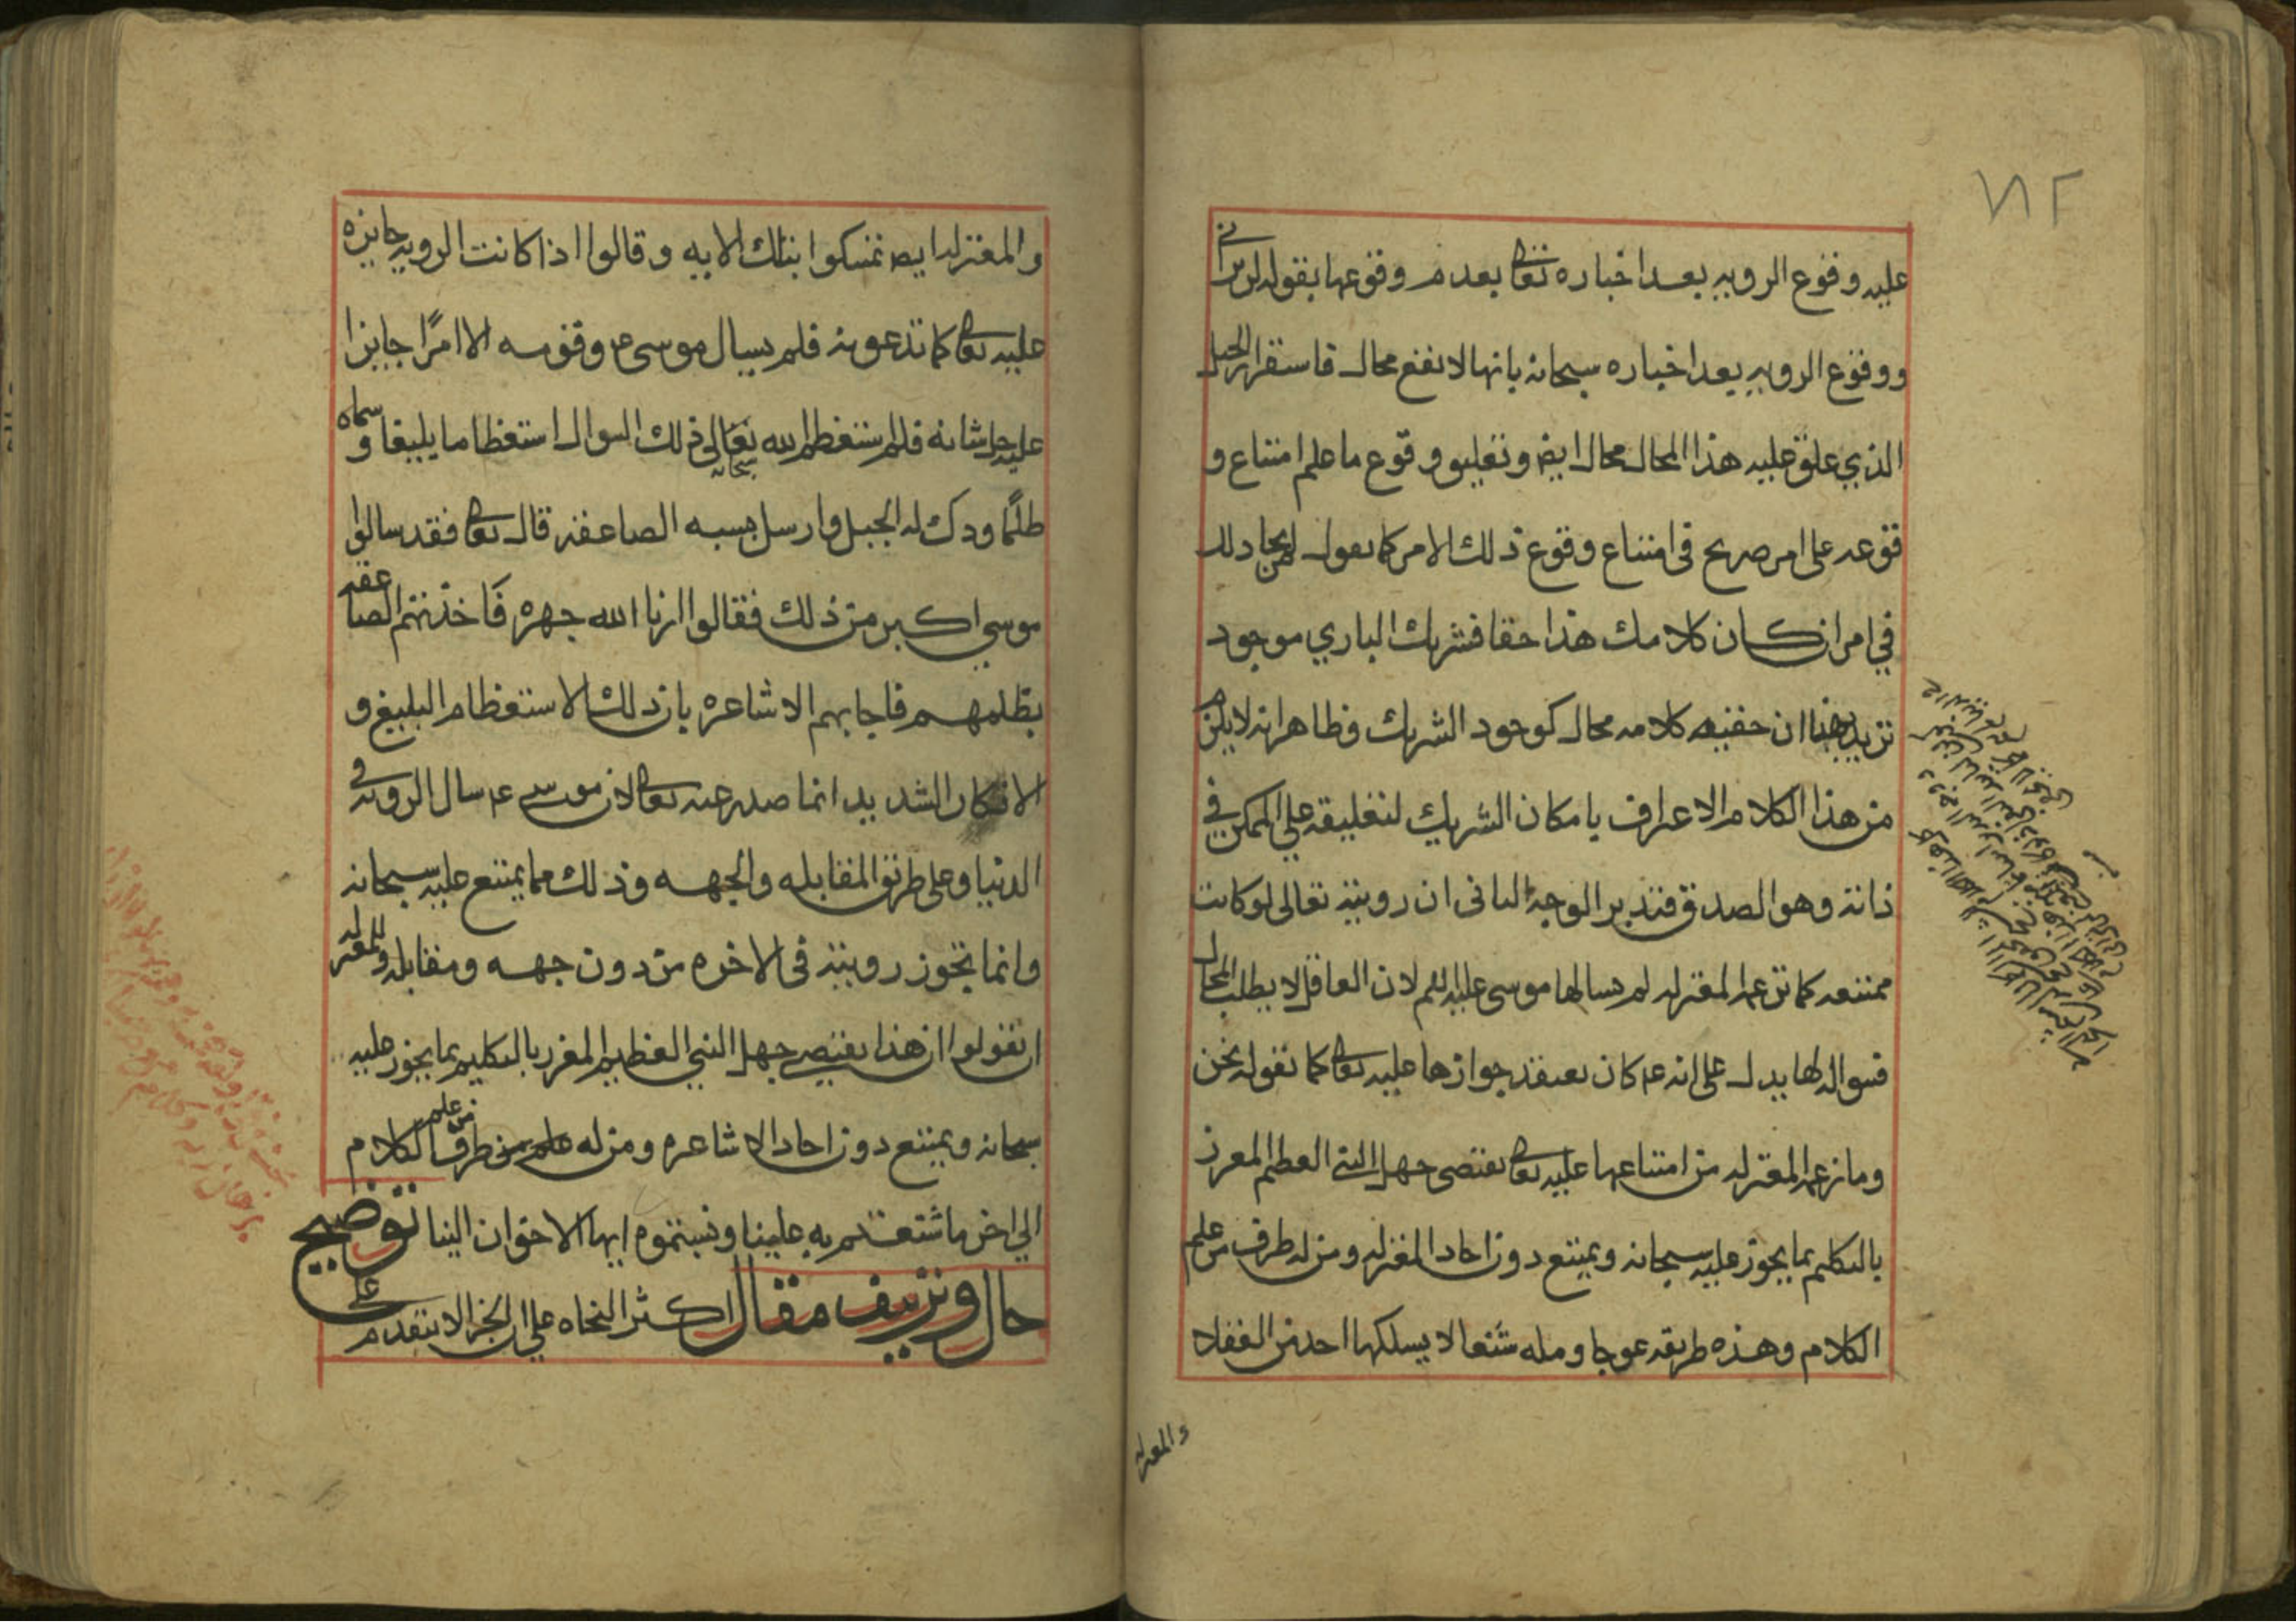 ٧١٢
عليه وقوع الرويه بعد اخباره تعالى بعدم وقوعها بقوله لن تراني
ووقوع الرويه بعد اخباره سبحانه بانها لا تقع محال فاستقرار الجبل
الذي علق عليه هذا المحال محال ايض وتعليق وقوع ما علم امتناع و
قوعه على امر صريح في امتناع وقوع ذلك الامر كما يقول لمن يجادلك
في امر ان كان كلامك هذا حقا فشريك الباري موجود
تريد بهذا ان حقيه كلامه محال كوجود الشريك وظاهر انه لا يلزم
من هذا الكلام الاعتراف بامكان الشريك لتعليقه على الممكن في
ذاته وهو الصدق فتدبر الوجه الثاني ان رويته تعالى لو كانت
ممتنعه كما تزعمه المعتزله لم يسالها موسى عليه السلم لان العاقل لا يطلب المحال
فسواله لها يدل على انه ع كان يعتقد جوازها عليه تعالى كما نقوله نحن
وما زعمه المعتزله من امتناعها عليه تعالى يقتضي جهل النبي العظيم المعزز
بالتكليم بما يجوز عليه سبحانه ويمتنع دون احاد المعتزله ومن له طرف من علم
الكلام وهذه طريقه عوجا ومله شنعا لا يسلكها احد من العقلا
والمعتزله
والمعتزله ايض تمسكوا بتلك الايه وقالوا اذا كانت الرويه جايزه
عليه تعالى كما تدعونه فلم يسال موسى ع وقومه الا امرًا جايزا
عليه جل شانه فلم ستعظم الله تعالى سبحانه ذلك السوال استعظاما بليغا وسماه
ظلمًا ودك له الجبل وارسل بسببه الصاعقه قال تعالى فقد سالوا
موسى اكبر من ذلك فقالوا ارنا الله جهره فاخذتهم الصاعقه
بظلمهم فاجابهم الاشاعره بان ذلك الاستعظام البليغ و
الانكار الشديد انما صدر عنه تعالى لان موسى ع سال الرويه في
الدنيا وعلى طريق المقابله والجهه وذلك مما يمتنع عليه سبحانه
وانما يجوز رويته في الاخره من دون جهه ومقابله وللمعتزله
ان تقولوا ان هذا يقتضي جهل النبي العظيم المعزز بالتكليم بما يجوز عليه
سبحانه ويمتنع دون احاد الاشاعره ومن له طرف من علم الكلام
الى اخر ما شنعتم به علينا ونسبتموه ايها الاخوان الينا توضيح
حال وتزييف مقال اكثر النحاه على ان الجزا لا يتقدم على